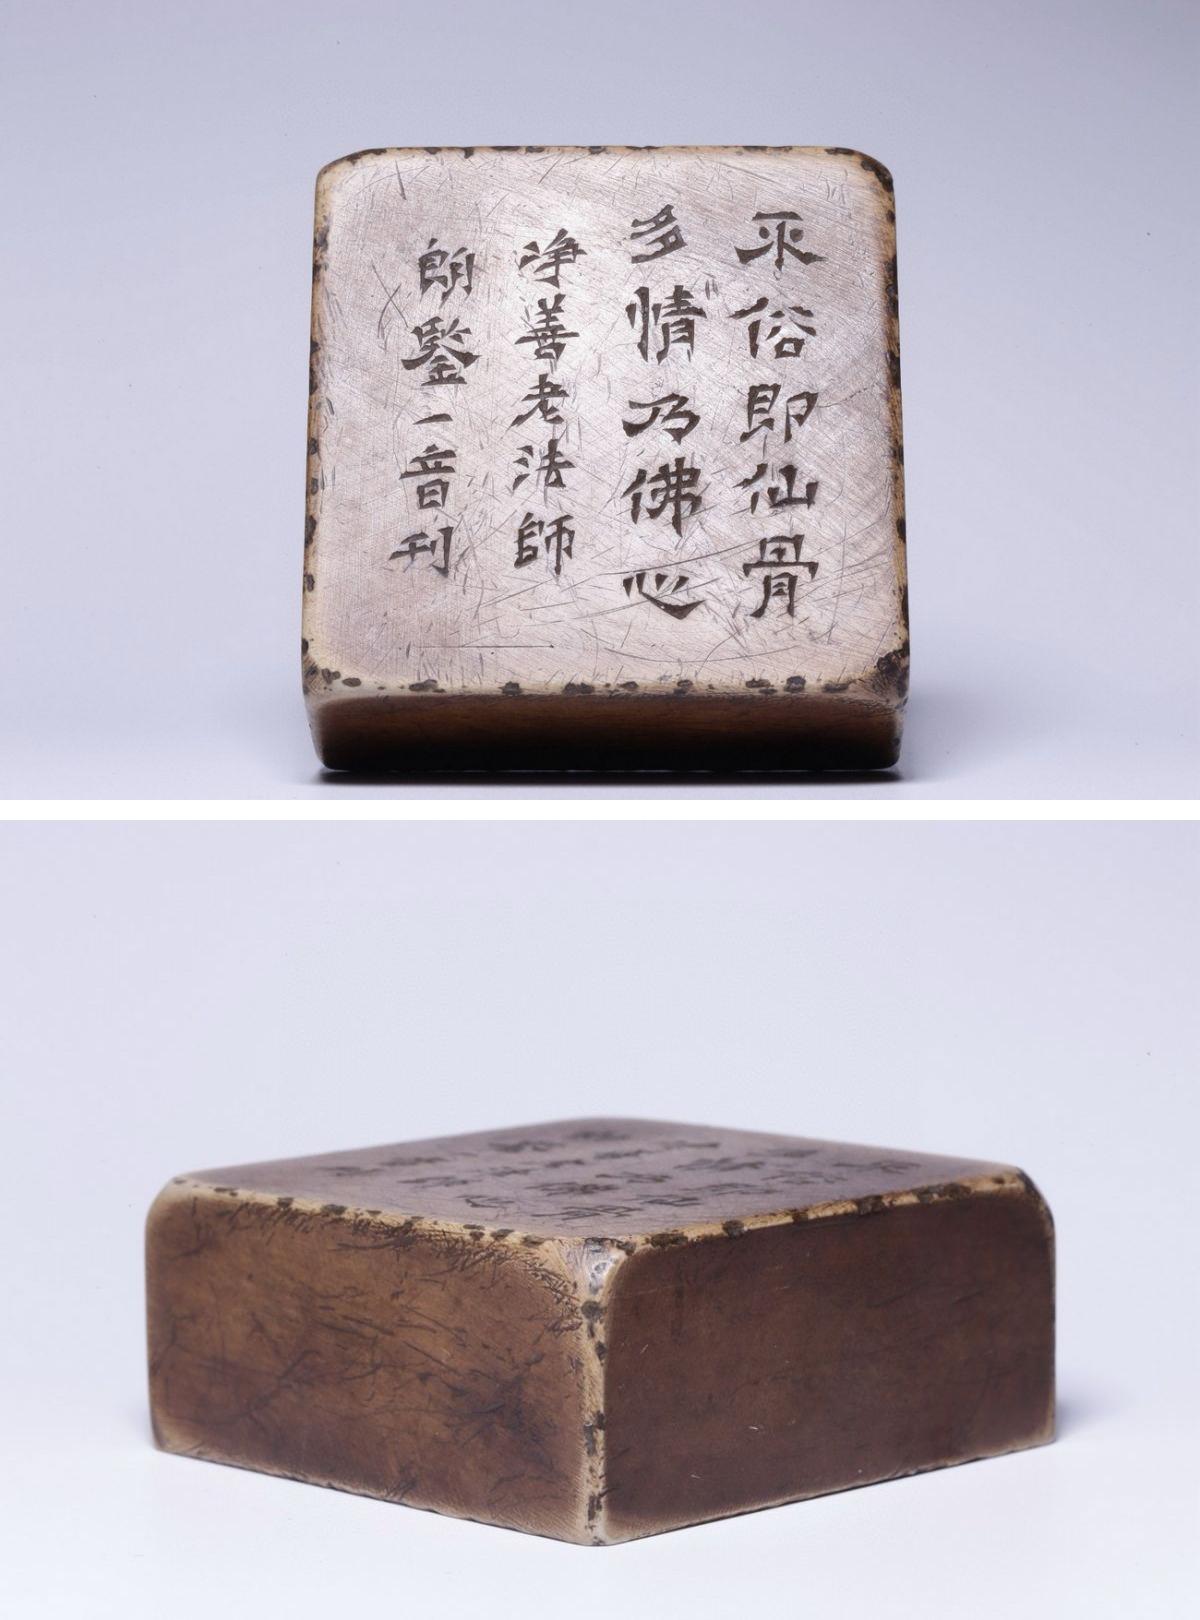 不俗即仙骨
多情乃佛心
淨善老法師
朗鑒一音刊